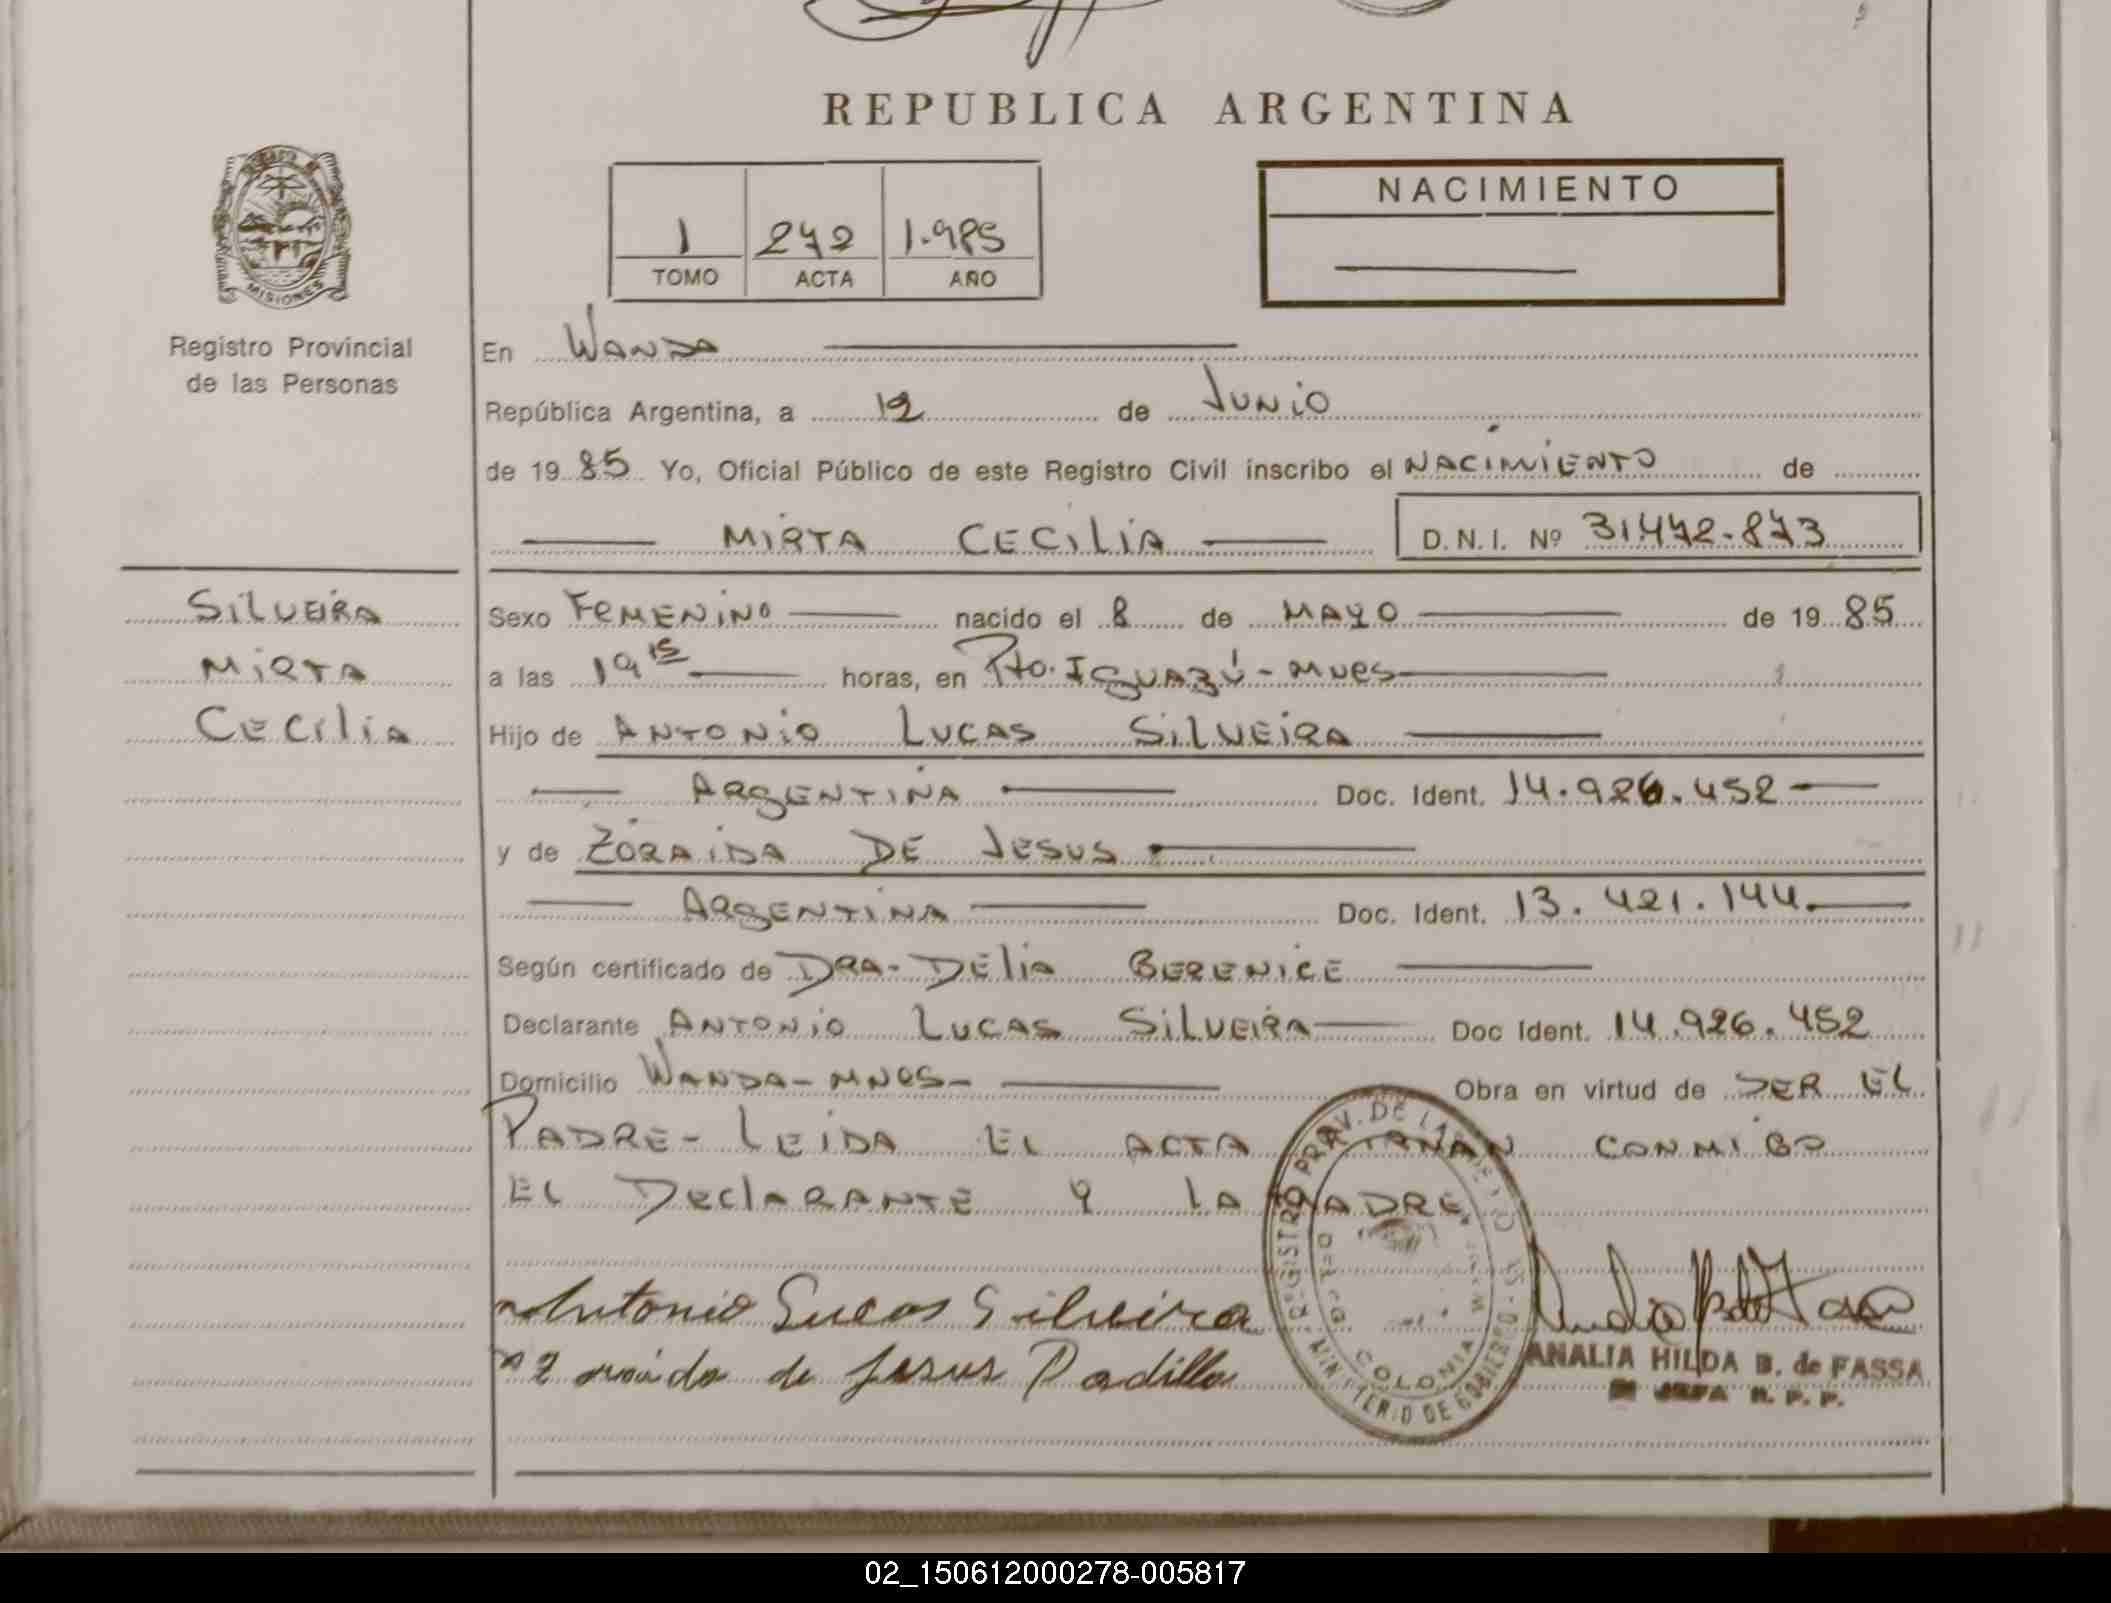 REPUBLICA ARGENTINA
MISIONES
Registro Provincial
de las Personas
1 272 1.985
TOMO ACTA AÑO
NACIMIENTO
En WANDA
República Argentina, a 12 de JUNIO
de 19 85 Yo, Oficial Público de este Registro Civil inscribo el NACIMIENTO de
MIRTA CECILIA D.N.I. Nº 31.472.873
SILVEIRA
MIRTA
CECILIA
Sexo FEMENINO nacido el 8 de MAYO de 19 85
a las 19 15 horas, en Pto. IGUAZÚ - MNES
Hijo de ANTONIO LUCAS SILVEIRA
ARGENTINA Doc. Ident. 14.926.452
y de ZORAIDA DE JESUS
ARGENTINA Doc. Ident. 13.421.144
Según certificado de DRA- DELIA BERENICE
Declarante ANTONIO LUCAS SILVEIRA Doc Ident. 14.926.452
Domicilio WANDA - MNES - Obra en virtud de SER EL
PADRE - LEIDA EL ACTA CONMIGO
EL DECLARANTE Y LA MADRE.
Antonio Lucas Silveira
de Jesus Padilla
COLONIA
MINISTERIO DE GOBIERNO
ANALIA HILDA B. de FASSA
JEFA R. P. P.
02_150612000278-005817